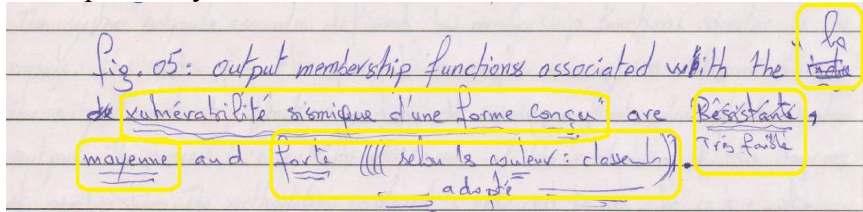 la
fig. 05: output membership functions associated with the "
vulnérabilité sismique d'une forme conçu" are "Résistante,
Très faible
moyenne and forte (((( selon la couleur : classement )).
adopté